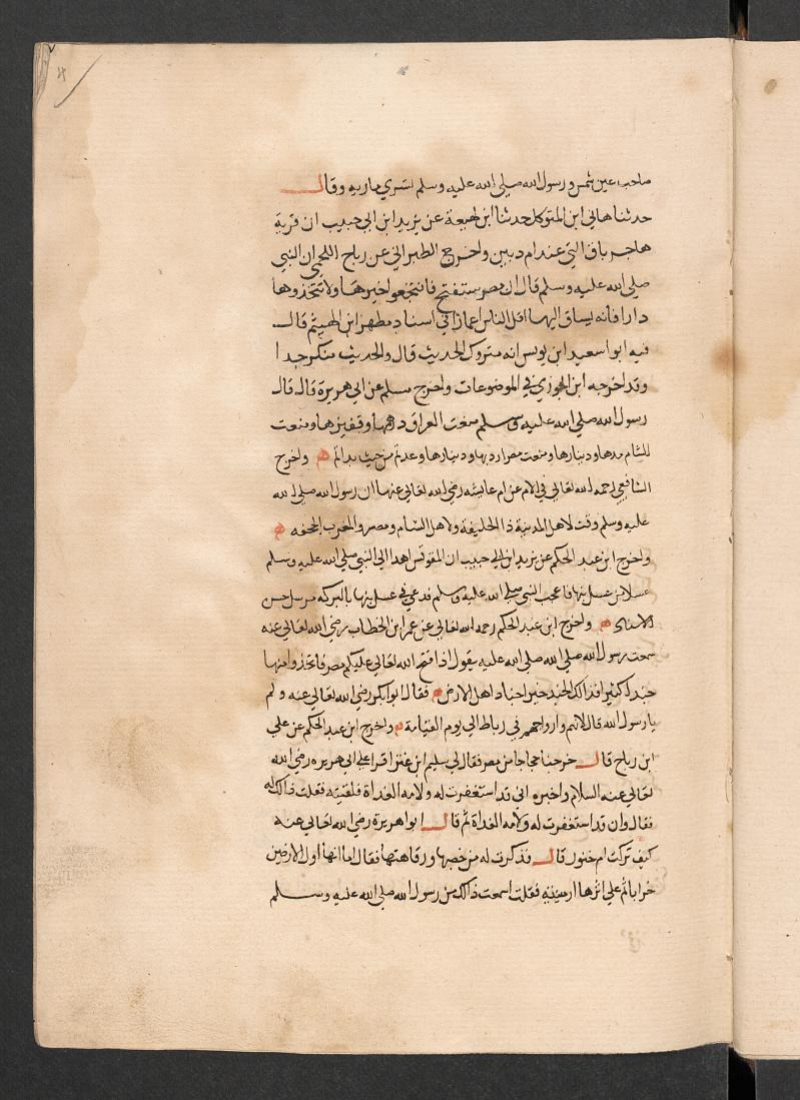 صاحب عين شمس ورسول الله صلى الله عليه وسلم تسري مارية وقال
حدثنا هاني ابن المتوكل حدثنا ابن لهيعة عن يزيد ابن ابي حبيب ان قرية
هاجر باق التي عند ام دبين واخرج الطبراني عن رباح اللخمي ان النبي
صلى الله عليه وسلم قال ان مصر ستفتح فانتجعوا خيرها ولا تتخذوها
دارا فانه يساق اليها اقل الناس اعمارا في اسناد مطهر ابن الهيثم قال
فيه ابوا سعيد ابن يونس انه متروك الحديث قال والحديث منكر جدا
وقد اخرجه ابن الجوزي في الموضوعات واخرج مسلم عن ابي هريرة قال قال
رسول الله صلى الله عليه وسلم منعت العراق درهمها وقفيزها ومنعت
الشام مدها ودينارها ومنعت مصر اردبها ودينارها وعدتم من حيث بداتم ه واخرج
الشافعي رحمه الله تعالى في الام عن ام عايشه رضي الله تعالى عنها ان رسول الله صلى الله
عليه وسلم وقت لاهل المدينة ذا الحليفة ولاهل الشام ومصر والمغرب الجحفه ه
واخرج ابن عبد الحكم عن يزيد ابن ابي حبيب ان المقوقس اهدا الى النبي صلى الله عليه وسلم
عسلا من عسل بنها فاعجب النبي صلى الله عليه وسلم فدعى في عسل بنها بالبركه مرسل حسن
الاسناد ه واخرج ابن عبد الحكم رحمه الله تعالى عن عمر ابن الخطاب رضي الله تعالى عنه
سمعت رسول الله صلى الله صلى الله عليه يقول اذا فتح الله تعالى عليكم مصر فاتخذوا منها
جندا كثيرا فذالك الجند خير اجناد اهل الارض ه فقال ابوا بكر رضي الله تعالى عنه ولم
يا رسول الله قال لانهم وازواجهم في رباط الى يوم القيامة ه واخرج ابن عبد الحكم عن علي
ابن رباح قال خرجنا حجاجا من مصر فقال لي سليم ابن عنز اقرا على ابي هريره رضي الله
تعالى عنه السلام واخبره اني قد استغفرت له ولامه الغداة فلقيته فقلت ذالك له
فقال وان قد استغفرت له ولامه الغداة ثم قال ابوا هريرة رضي الله تعالى عنه
كيف تركت ام خنور قال فذكرت له من خصبها ورفاهتها فقال اما انها اول الارضين
خرابا ثم على اثرها ارمينية فقلت اسمعت ذالك من رسول الله صلى الله عليه وسلم